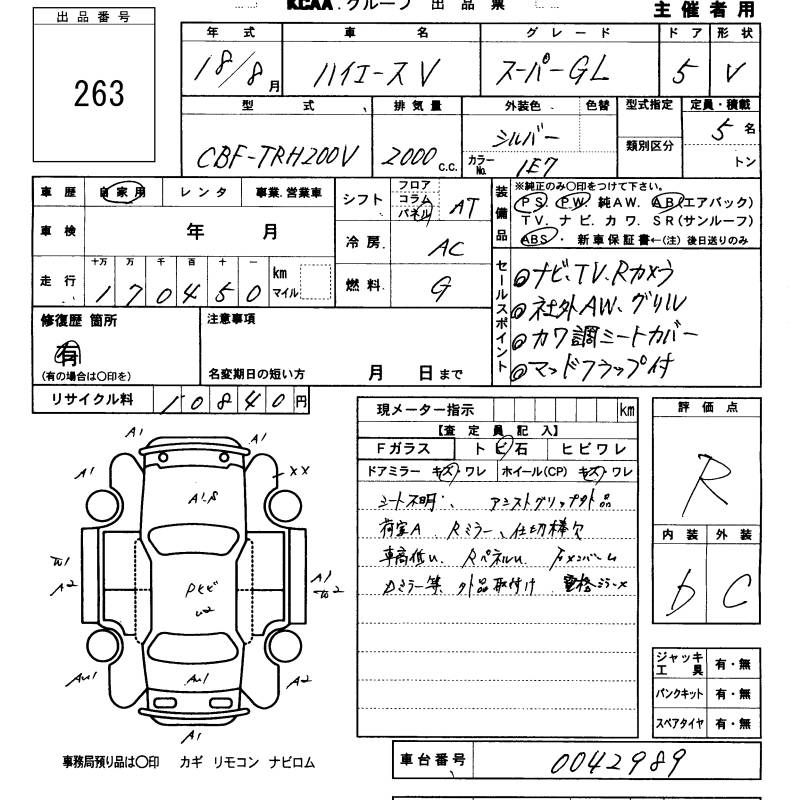 KCAA.グループ 出品票
主催者用
出品番号
263
年式 車名 グレード ドア 形状
18/8月 ハイエースV スーパーGL 5 V
型式 排気量 外装色 色替 型式指定 定員・積載
CBF-TRH200V 2000c.c. シルバー 5名
カラーNo. 1E7 類別区分 トン
車歴 自家用 レンタ 事業.営業車
シフト フロア コラム パネル AT
車検 年 月
冷房 AC
走行 十万 万 千 百 十 一
170450 km マイル
燃料 G
装備品
※純正のみ〇印をつけて下さい。
PS PW 純AW. AB(エアバック)
TV. ナビ. カワ. SR(サンルーフ)
ABS・ 新車保証書←(注)後日送りのみ
セールスポイント
ナビ、TV、Rカメラ
社外AW、グリル
カワ調シートカバー
マッドフラップ付
修復歴 箇所
有
(有の場合は〇印を)
注意事項
名変期日の短い方 月 日まで
リサイクル料 10840円
現メーター指示 km
【査定員記入】
Fガラス トビ石 ヒビワレ
ドアミラー キズ ワレ ホイール(CP) キズ ワレ
シート不明、アシストグリップ外品
荷室A Rミラー、仕切棒欠
車高低い Rパネルu
Dミラー等 外品取付け
評価点
R
内装 外装
D C
ジャッキ工具 有・無
パンクキット 有・無
スペアタイヤ 有・無
A1 A1
A1 XX
A1.8
A2 A1
U2
AU1 AU1 A2
A1
事務局預り品は〇印 カギ リモコン ナビロム
車台番号 0042989